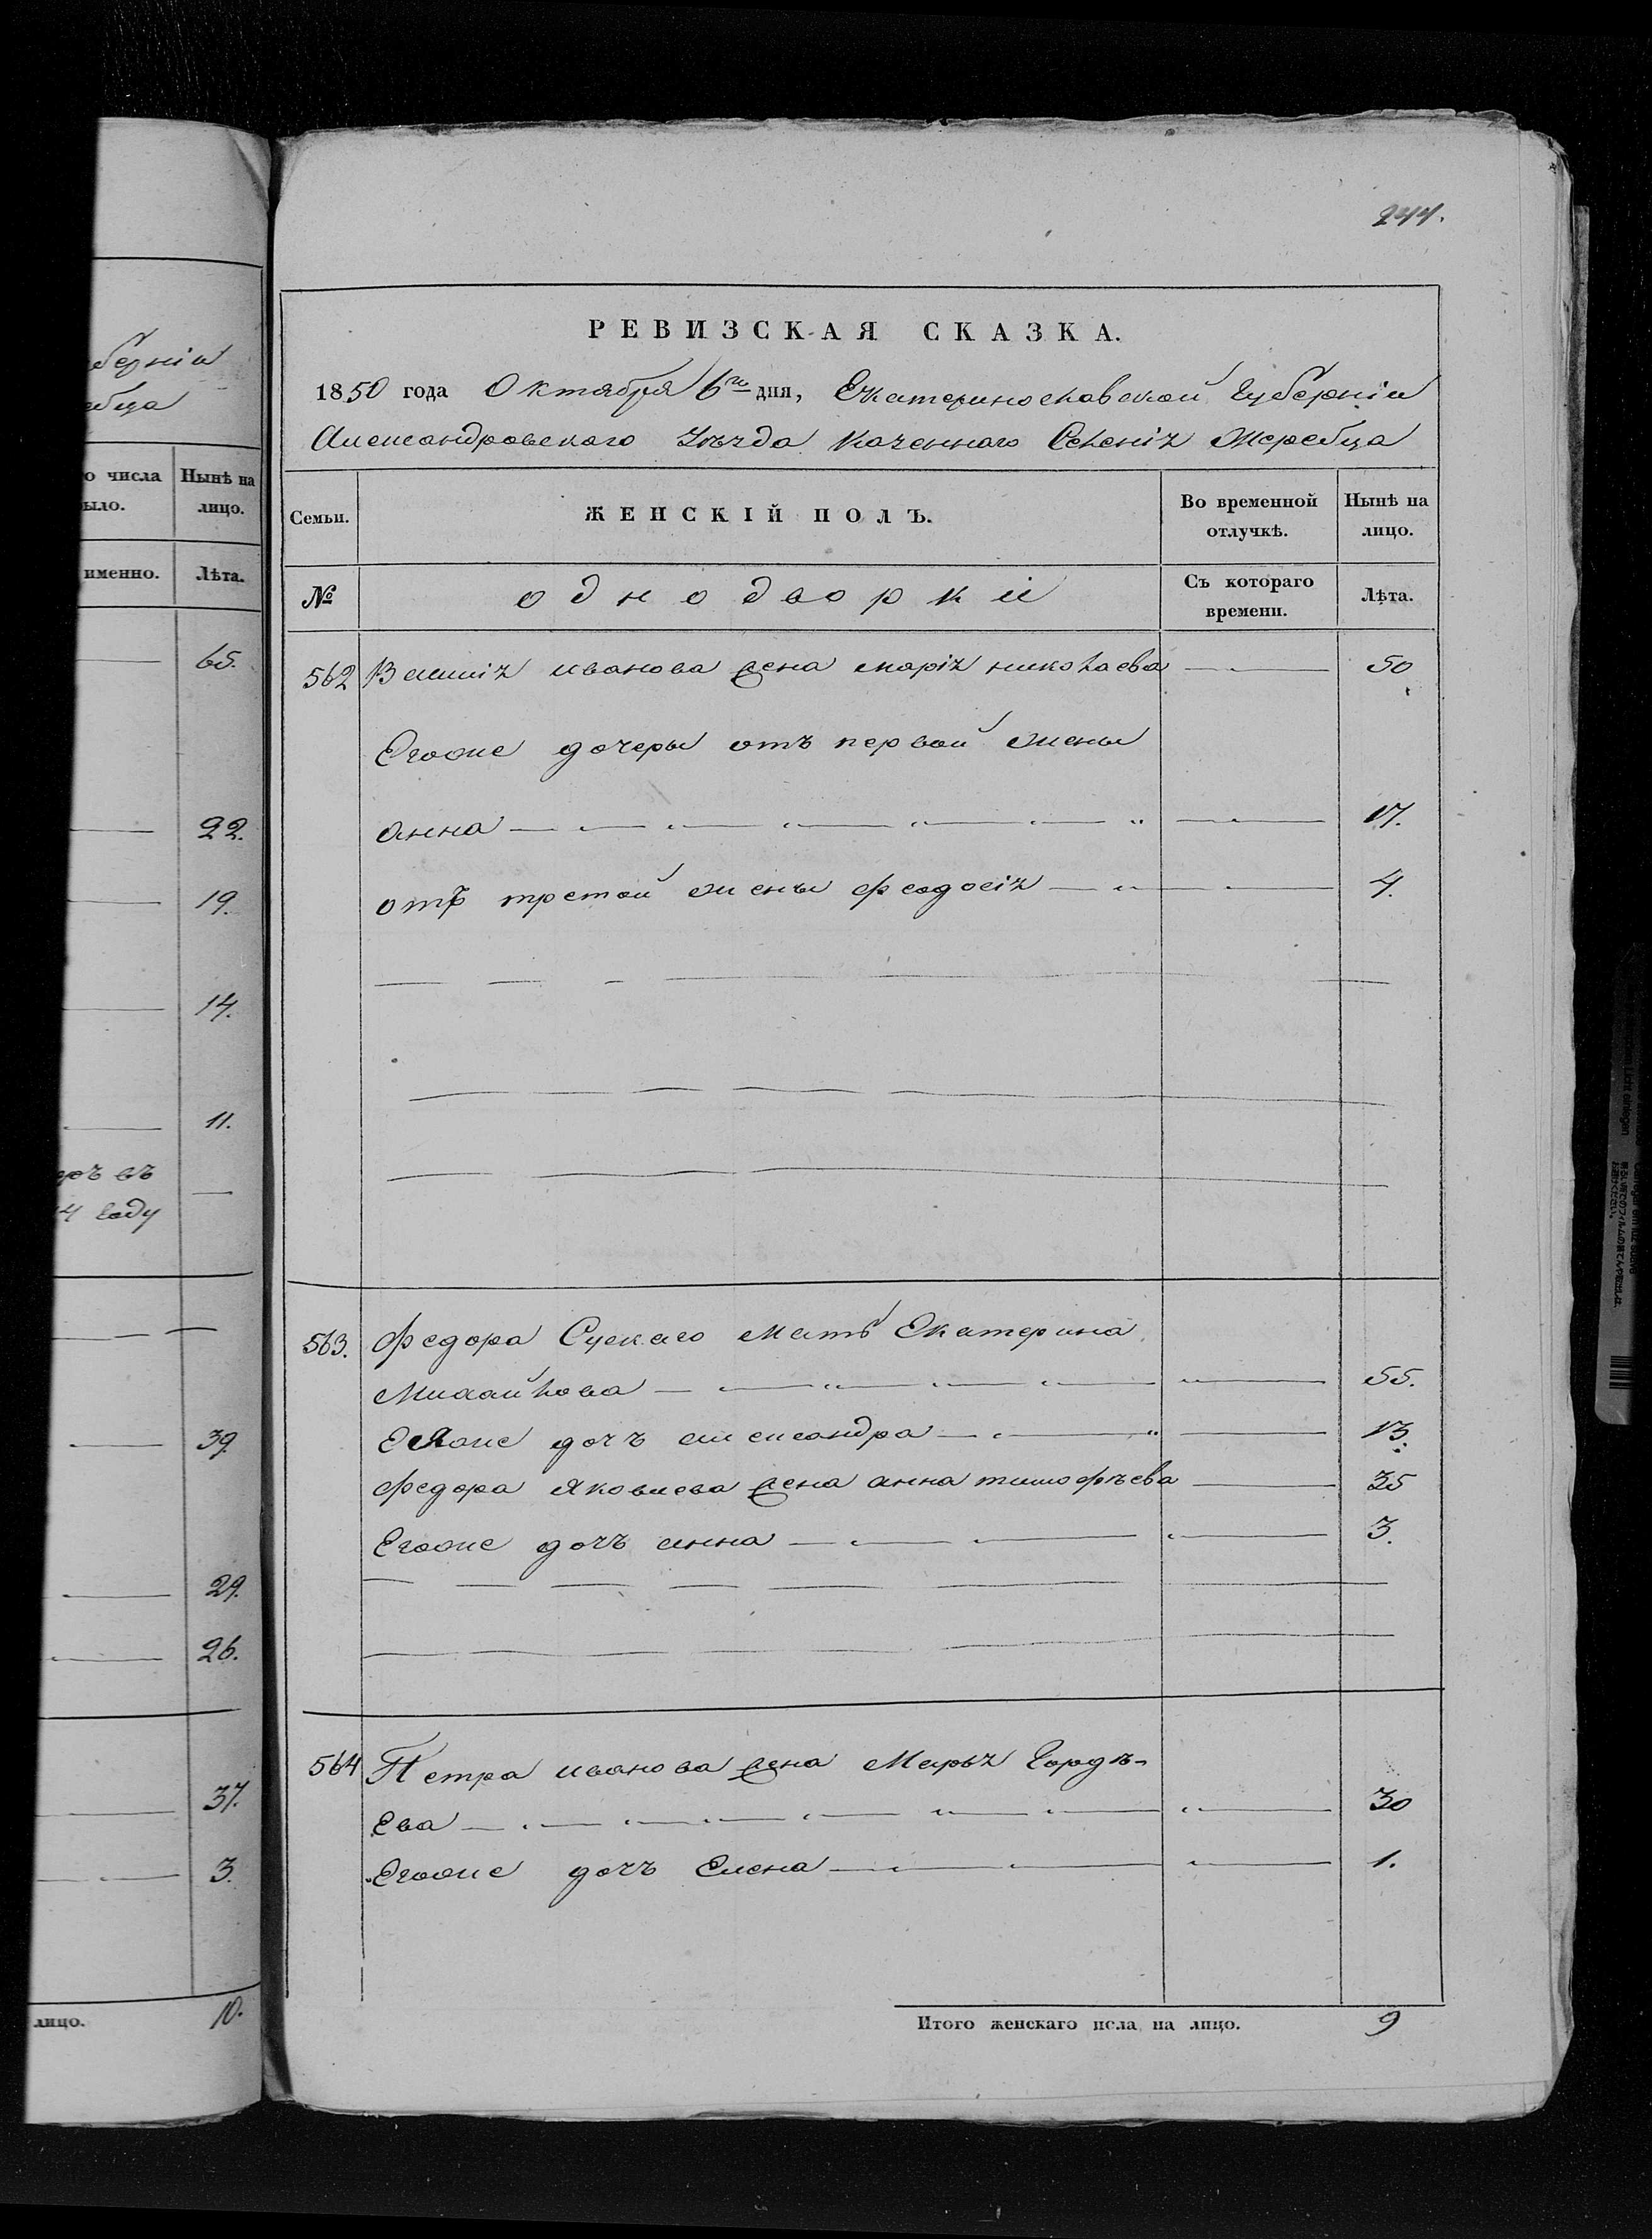 бернiи
ебца
о числа
Нынѣ на
ыло.
лицо.
именно.
Лѣта.
65.
22.
19.
14.
11.
ръ въ
4 году
39.
29.
26.
37.
3.
лицо.
10.
244.
РЕВИЗСКАЯ СКАЗКА.
1850 года Октября 6го дня, Екатеринославской Губернiи
Александровскаго Уѣзда Казеннаго Селенiя Жеребца
Семьи.
ЖЕНСКIЙ ПОЛЪ.
Во временной
отлучкѣ.
Нынѣ на
лицо.
№
однодворки
Съ котораго
времени.
Лѣта.
562 иванова жена марiя николаева 50
Егоже дочеры отъ первой жены
анна 17.
отъ третой жены феодосiя 4.
563. Федора мать Екатерина
Михайлова 55.
Еяже дочъ александра 13.
Федора Яковлева жена анна тимофѣева 35
Егоже дочъ анна 3.
564 Петра иванова жена Марья Гордѣ-
ева 30
Егоже дочъ Елена 1.
Итого женскаго пола на лицо. 9